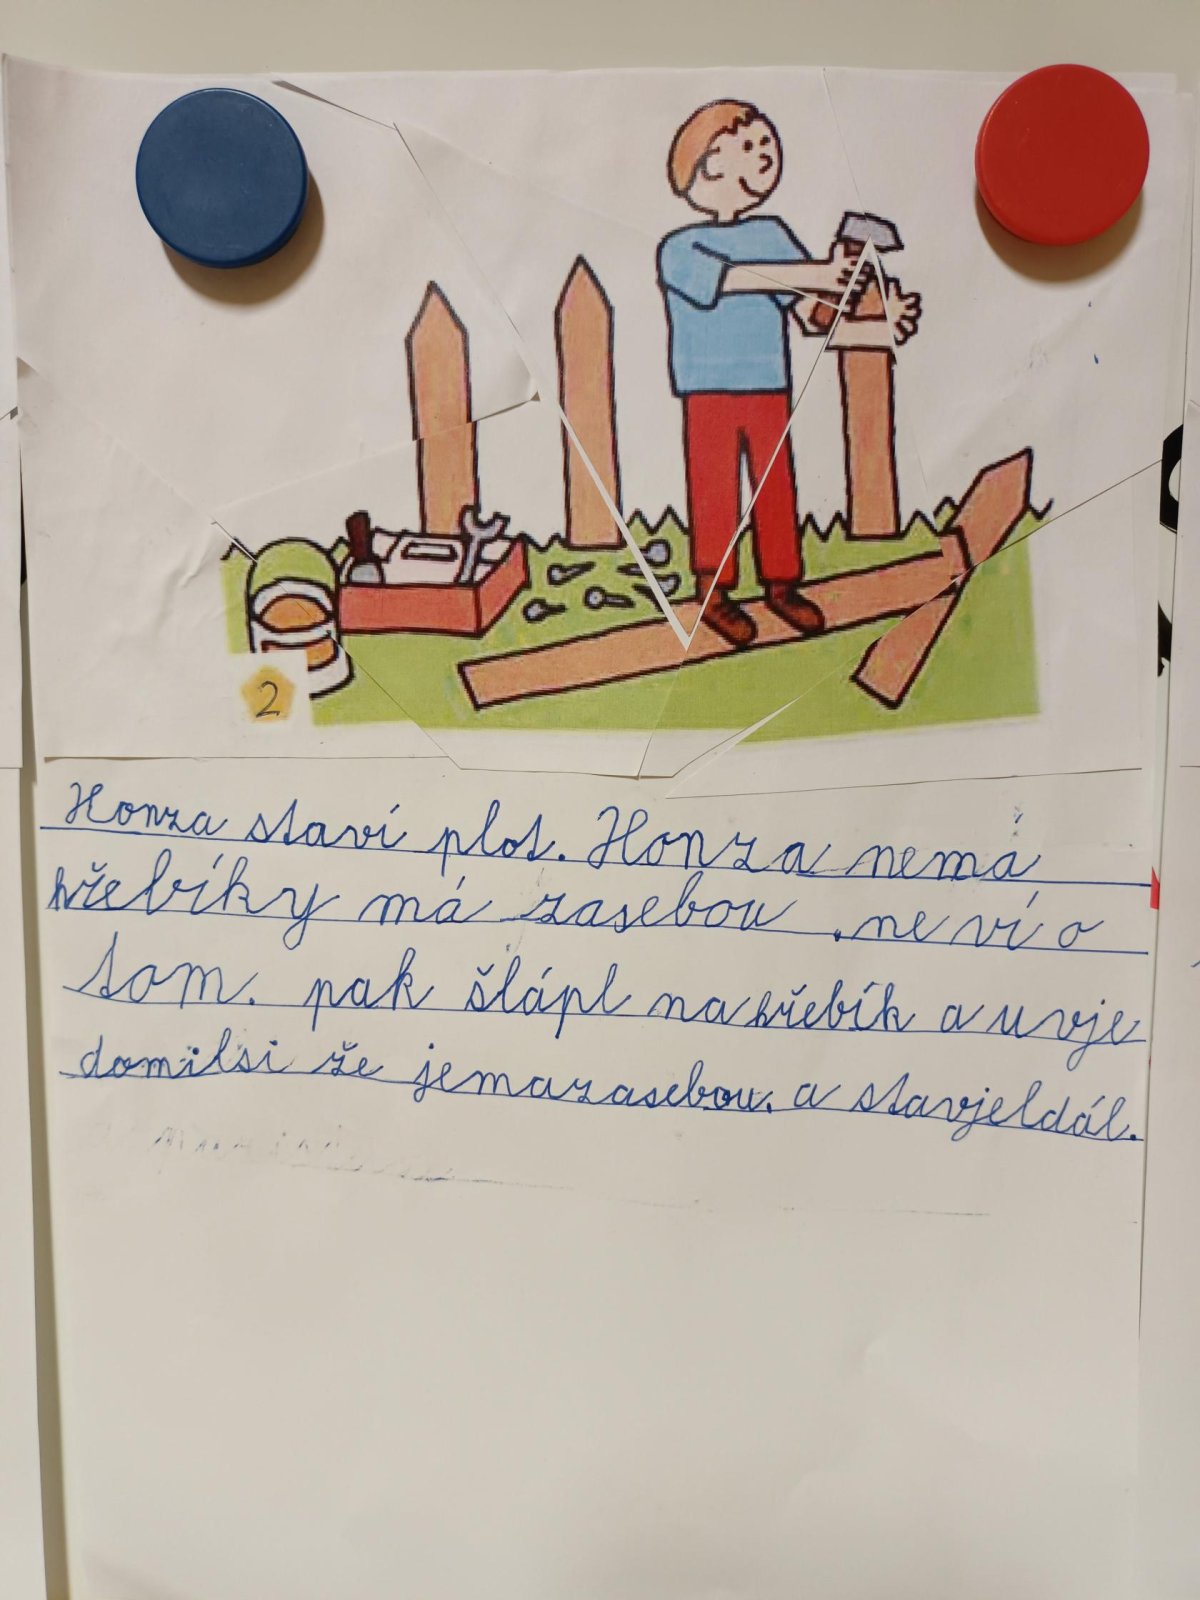 2
Honza staví plot. Honza nemá
hřebíky má zasebou . ne ví o
tom. pak šlápl na hřebík a uvje
domilsi že jemazasebou. a stavjeldál.